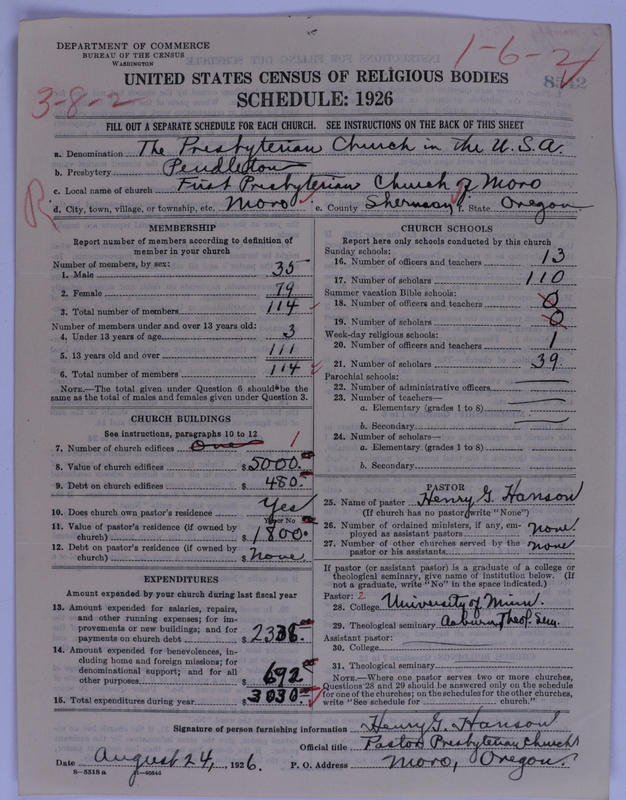 DEPARTMENT OF COMMERCE
BUREAU OF THE CENSUS
WASHINGTON
1-6-2
8542
3-8-2
UNITED STATES CENSUS OF RELIGIOUS BODIES
SCHEDULE: 1926
FILL OUT A SEPARATE SCHEDULE FOR EACH CHURCH. SEE INSTRUCTIONS ON THE BACK OF THIS SHEET
a. Denomination The Presbyterian Church in the U.S.A.
b. Presbytery Pendleton
c. Local name of church First Presbyterian Church of Moro
R
d. City, town, village, or township, etc. Moro e. County Sherman f. State Oregon
MEMBERSHIP
Report number of members according to definition of
member in your church
Number of members, by sex:
1. Male 35
2. Female 79
3. Total number of members 114
Number of members under and over 13 years old:
4. Under 13 years of age 3
5. 13 years old and over 111
6. Total number of members 114
NOTE.—The total given under Question 6 should be the
same as the total of males and females given under Question 3.
CHURCH BUILDINGS
See instructions, paragraphs 10 to 12
7. Number of church edifices One 1
8. Value of church edifices $5000.00
9. Debt on church edifices $ 480.00
10. Does church own pastor's residence Yes
Yes or No
11. Value of pastor's residence (if owned by
church) $ 1800.
12. Debt on pastor's residence (if owned by
church) $ None
EXPENDITURES
Amount expended by your church during last fiscal year
13. Amount expended for salaries, repairs,
and other running expenses; for im-
provements or new buildings; and for
payments on church debt $ 2338.00
14. Amount expended for benevolences, in-
cluding home and foreign missions; for
denominational support; and for all
other purposes $ 692.00
15. Total expenditures during year $ 3030.00
CHURCH SCHOOLS
Report here only schools conducted by this church
Sunday schools:
16. Number of officers and teachers 13
17. Number of scholars 110
Summer vacation Bible schools:
18. Number of officers and teachers 0
19. Number of scholars 0
Week-day religious schools:
20. Number of officers and teachers 1
21. Number of scholars 39
Parochial schools:
22. Number of administrative officers
23. Number of teachers—
a. Elementary (grades 1 to 8)
b. Secondary
24. Number of scholars—
a. Elementary (grades 1 to 8)
b. Secondary
PASTOR
25. Name of pastor Henry G. Hanson
(If church has no pastor, write "None")
26. Number of ordained ministers, if any, em-
ployed as assistant pastors none
27. Number of other churches served by the
pastor or his assistants none
If pastor (or assistant pastor) is a graduate of a college or
theological seminary, give name of institution below. (If
not a graduate, write "No" in the space indicated.)
Pastor: 2
28. College University of Minn.
29. Theological seminary Auburn Theol. Sem.
Assistant pastor:
30. College
31. Theological seminary
NOTE.—Where one pastor serves two or more churches,
Questions 28 and 29 should be answered only on the schedule
for one of the churches; on the schedules for the other churches,
write "See schedule for church."
Signature of person furnishing information Henry G. Hanson
Official title Pastor Presbyterian Church
Date August 24, 1926. P. O. Address Moro, Oregon.
8—5318 a